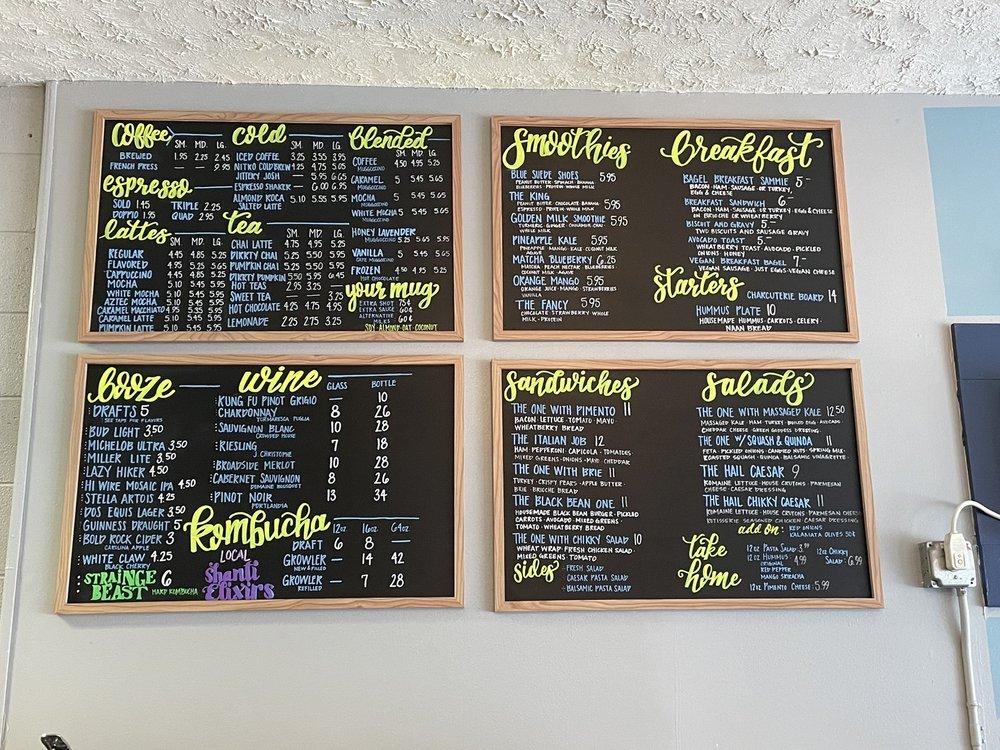 Coffee SM. MD. LG.
BREWED 1.95 2.25 2.45
FRENCH PRESS — — 9.95
espresso
SOLO 1.45 TRIPLE 2.25
DOPPIO 1.95 QUAD 2.95
lattes SM. MD. LG.
REGULAR 4.45 4.85 5.25
FLAVORED 4.95 5.25 5.65
CAPPUCCINO 4.45 4.85 5.25
MOCHA 5.10 5.45 5.95
WHITE MOCHA 5.10 5.45 5.95
AZTEC MOCHA 5.10 5.45 5.95
CARAMEL MACCHIATO 4.95 5.35 5.65
CARAMEL LATTE 5.10 5.45 5.95
PUMPKIN LATTE 5.10 5.45 5.95
Cold SM. MD. LG.
ICED COFFEE 3.25 3.55 3.95
NITRO COLD BREW 4.25 4.75 5.05
JITTERY JOSH — 5.95 6.65
ESPRESSO SHAKER — 6.00 6.95
ALMOND ROCA 5.10 5.55 5.95
SALTED LATTE
tea SM. MD. LG.
CHAI LATTE 4.75 4.95 5.25
DIRRTY CHAI 5.25 5.50 5.95
PUMPKIN CHAI 5.25 5.50 5.95
DIRRTY PUMPKIN 5.50 5.95 6.45
HOT TEAS 2.95 3.25 —
SWEET TEA — — 3.25
HOT CHOCOLATE 4.25 4.75 4.95
LEMONADE 2.25 2.75 3.25
blended
SM. MD. LG.
COFFEE 4.50 4.95 5.25
MUGGOCCINO
CARAMEL 5 5.45 5.65
MUGGOCCINO
MOCHA 5 5.45 5.65
MUGGOCCINO
WHITE MOCHA 5 5.45 5.65
MUGGOCCINO
HONEY LAVENDER
MUGGOCCINO 5.25 5.65 5.95
VANILLA 5 5.45 5.65
CAFE MUGGOCCINO
FROZEN 4.50 4.95 5.25
HOT CHOCOLATE
your mug
EXTRA SHOT 75¢
EXTRA SAUCE 60¢
ALTERNATIVE
MILKS 60¢
SOY · ALMOND · OAT · COCONUT
Smoothies
BLUE SUEDE SHOES 5.95
PEANUT BUTTER · SPINACH · BANANA
BLUEBERRIES · PROTEIN · WHOLE MILK
THE KING 5.95
PEANUT BUTTER · CHOCOLATE · BANANA
ESPRESSO · PROTEIN · WHOLE MILK
GOLDEN MILK SMOOTHIE 5.95
TURMERIC · GINGER · CINNAMON · CHAI
WHOLE MILK
PINEAPPLE KALE 5.95
PINEAPPLE · MANGO · KALE · COCONUT MILK
AGAVE
MATCHA BLUEBERRY 6.25
MATCHA · PEACH NECTAR · BLUEBERRIES
COCONUT MILK · AGAVE
ORANGE MANGO 5.95
ORANGE JUICE · MANGO · STRAWBERRIES
VANILLA
THE FANCY 5.95
CHOCOLATE · STRAWBERRY · WHOLE
MILK · PROTEIN
Breakfast
BAGEL BREAKFAST SAMMIE 5—
BACON · HAM · SAUSAGE · OR TURKEY,
EGG & CHEESE
BREAKFAST SANDWICH 6—
BACON · HAM · SAUSAGE OR TURKEY · EGG & CHEESE
ON BRIOCHE OR WHEATBERRY
BISCUIT AND GRAVY 5—
TWO BISCUITS AND SAUSAGE GRAVY
AVOCADO TOAST 5—
WHEATBERRY TOAST · AVOCADO · PICKLED
ONIONS · HONEY
VEGAN BREAKFAST BAGEL 7—
VEGAN SAUSAGE · JUST EGGS · VEGAN CHEESE
Starters
CHARCUTERIE BOARD 14
HUMMUS PLATE 10
HOUSEMADE HUMMUS · CARROTS · CELERY ·
NAAN BREAD
booze
DRAFTS 5
SEE TAPS FOR FLAVORS
BUD LIGHT 3.50
MICHELOB ULTRA 3.50
MILLER LITE 3.50
LAZY HIKER 4.50
HI WIRE MOSAIC IPA 4.50
STELLA ARTOIS 4.25
DOS EQUIS LAGER 3.50
GUINNESS DRAUGHT 5
BOLD ROCK CIDER 3
CAROLINA APPLE
WHITE CLAW 4.25
BLACK CHERRY
STRAINGE BEAST 6
HARD KOMBUCHA
wine GLASS BOTTLE
KUNG FU PINOT GRIGIO — 10
CHARDONNAY 8 26
TORMARESCA PUGLIA
SAUVIGNON BLANC 10 28
CROWDED HOUSE
RIESLING 7 18
J. CHRISTOPHE
BROADSIDE MERLOT 10 28
CABERNET SAUVIGNON 8 26
DOMAINE BOUSQUET
PINOT NOIR 13 34
PORTLANDIA
Kombucha 12oz 16oz 64oz
DRAFT 6 8 —
GROWLER — 14 42
NEW & FILLED
GROWLER — 7 28
REFILLED
LOCAL
Shanti
Elixirs
Sandwiches
THE ONE WITH PIMENTO 11
BACON · LETTUCE · TOMATO · MAYO ·
WHEATBERRY BREAD
THE ITALIAN JOB 12
HAM · PEPPERONI · CAPICOLA · TOMATOES ·
MIXED GREENS · ONIONS · MAYO · CHEDDAR
THE ONE WITH BRIE 11
TURKEY · CRISPY PEARS · APPLE BUTTER ·
BRIE · BRIOCHE BREAD
THE BLACK BEAN ONE 11
HOUSEMADE BLACK BEAN BURGER · PICKLED
CARROTS · AVOCADO · MIXED GREENS ·
TOMATO · WHEATBERRY BREAD
THE ONE WITH CHIKKY SALAD 10
WHEAT WRAP · FRESH CHICKEN SALAD
MIXED GREENS TOMATO
sides
· FRESH SALAD
· CAESAR PASTA SALAD
· BALSAMIC PASTA SALAD
Salads
THE ONE WITH MASSAGED KALE 12.50
MASSAGED KALE · HAM · TURKEY · BOILED EGG · AVOCADO ·
CHEDDAR CHEESE · GREEN GODDESS DRESSING
THE ONE W/ SQUASH & QUINOA 11
FETA · PICKLED ONIONS · CANDIED NUTS · SPRING MIX ·
ROASTED SQUASH · QUINOA · BALSAMIC VINAIGRETTE
THE HAIL CAESAR 9
ROMAINE LETTUCE · HOUSE CRUTONS · PARMESAN
CHEESE · CAESAR DRESSING
THE HAIL CHIKKY CAESAR 11
ROMAINE LETTUCE · HOUSE CRUTONS · PARMESAN CHEESE
ROTISSERIE SEASONED CHICKEN CAESAR DRESSING
add on: RED ONIONS
KALAMATA OLIVES 50¢
take
home
12oz PASTA SALAD 3.99
12oz HUMMUS: 4.99
ORIGINAL
RED PEPPER
MANGO SRIRACHA
12oz CHIKKY
SALAD · 6.99
12oz PIMENTO CHEESE · 5.99